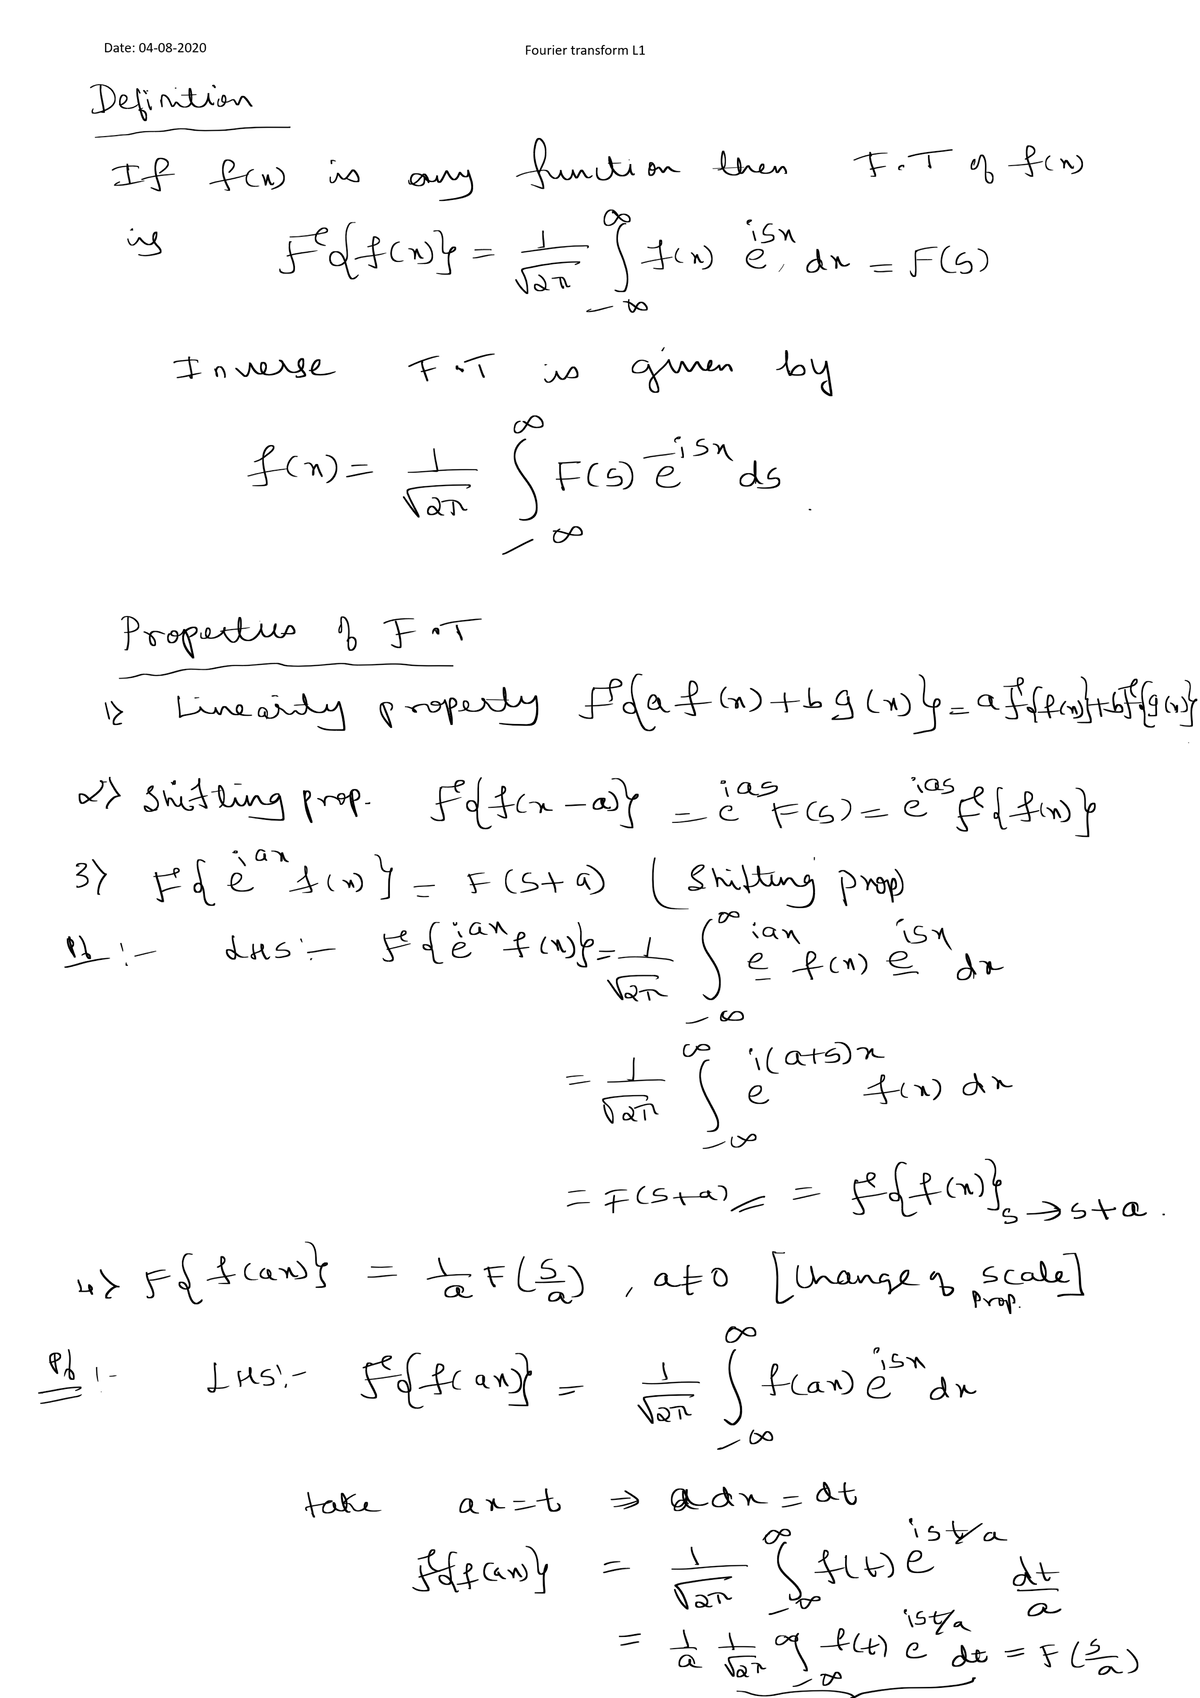 Date: 04-08-2020 Fourier transform L1
Definition
If f(x) is any function then F.T of f(x)
is F{f(x)} = 1/√2π ∫_{-∞}^{∞} f(x) e^{isx} dx = F(s)
Inverse F.T is given by
f(x) = 1/√2π ∫_{-∞}^{∞} F(s) e^{-isx} ds
Properties of F.T
1> Linearity property F{a f(x) + b g(x)} = a F{f(x)} + b F{g(x)}
2> Shifting prop. F{f(x-a)} = e^{ias} F(s) = e^{ias} F{f(x)}
3> F{e^{iax} f(x)} = F(s+a) (Shifting prop)
Pf :- LHS:- F{e^{iax} f(x)} = 1/√2π ∫_{-∞}^{∞} e^{iax} f(x) e^{isx} dx
= 1/√2π ∫_{-∞}^{∞} e^{i(a+s)x} f(x) dx
= F(s+a) = F{f(x)}_{s→s+a}.
4> F{f(ax)} = 1/a F(s/a), a≠0 [Change of scale]
prop.
Pf :- LHS:- F{f(ax)} = 1/√2π ∫_{-∞}^{∞} f(ax) e^{isx} dx
take ax=t ⇒ a dx = dt
F{f(ax)} = 1/√2π ∫_{-∞}^{∞} f(t) e^{ist/a} dt/a
= 1/a 1/√2π ∫_{-∞}^{∞} f(t) e^{ist/a} dt = F(s/a)